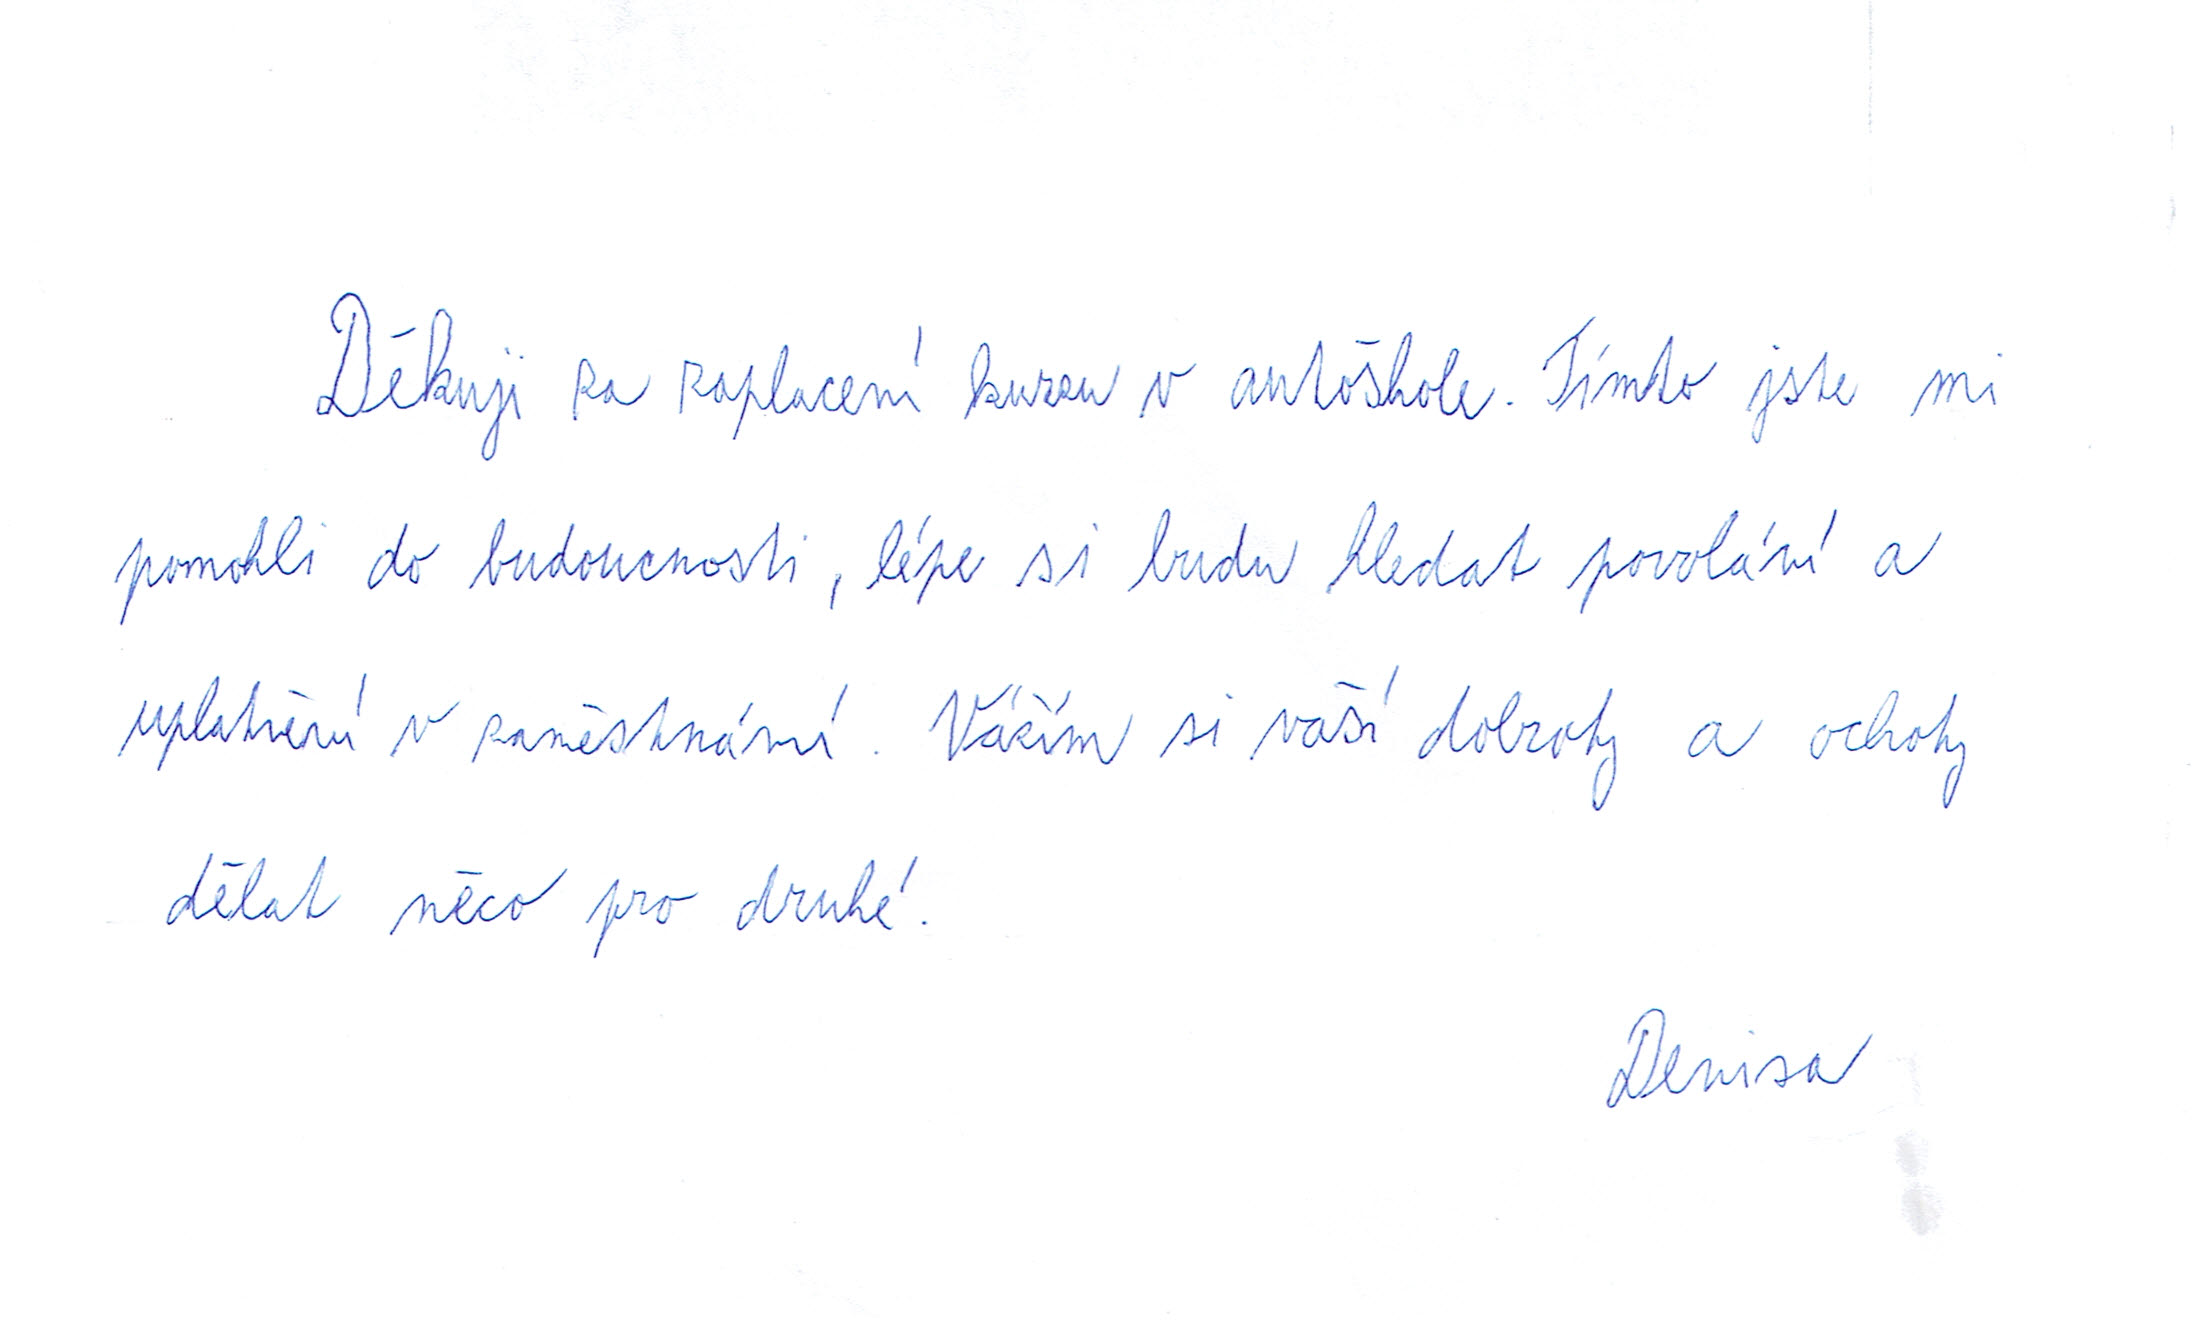 Děkuji za zaplacení kurzu v autoškole. Tímto jste mi
pomohli do budoucnosti, lépe si budu hledat povolání a
uplatnění v zaměstnání. Vážím si vaší dobroty a ochoty
dělat něco pro druhé.
Denisa